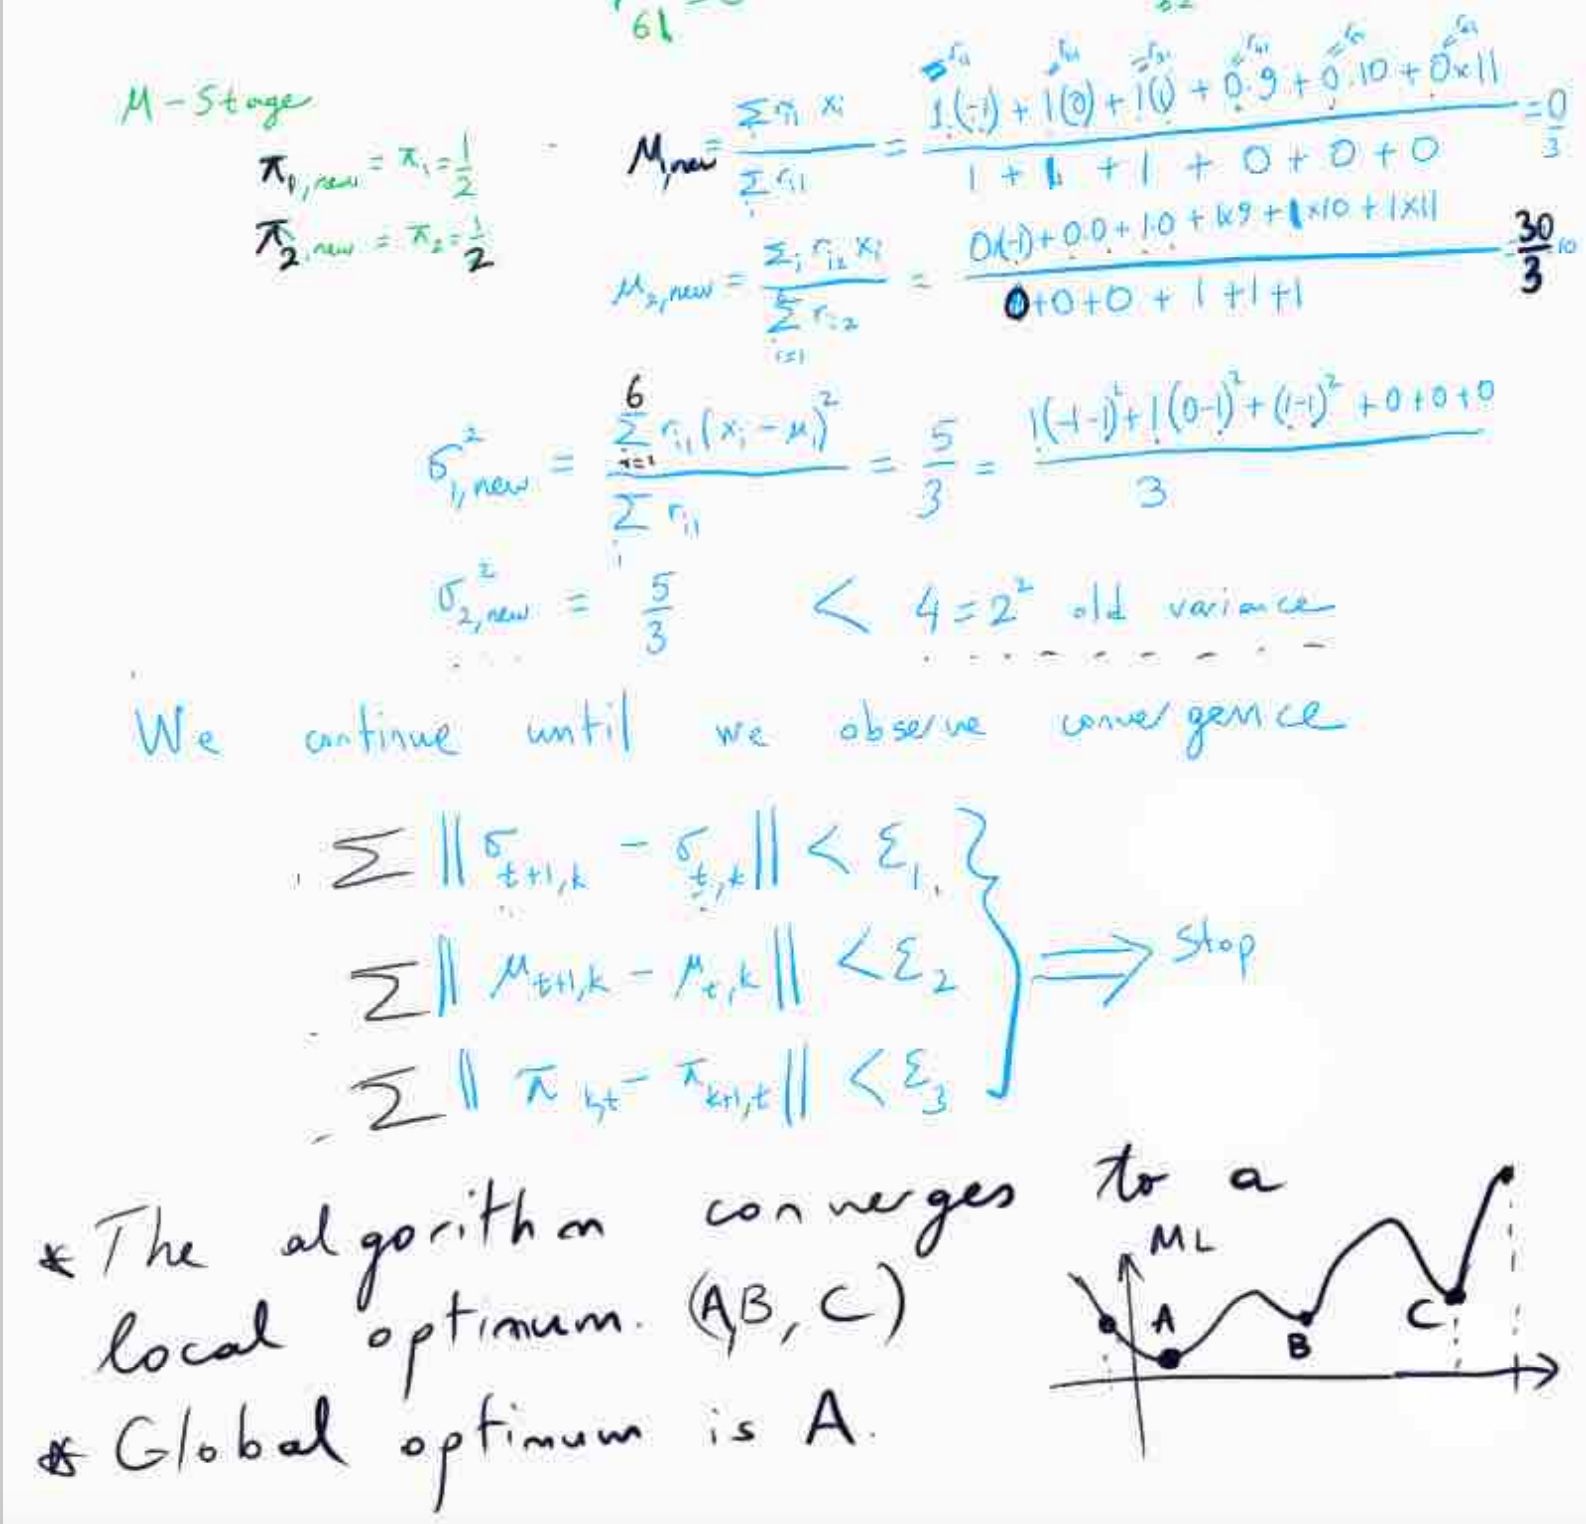 61
M-Stage
π₁,new = π₁ = 1/2
π₂,new = π₂ = 1/2
μ₁,new = Σ rᵢ₁ xᵢ / Σᵢ rᵢ₁ = 1.(-1) + 1(0) + 1(1) + 0.9 + 0.10 + 0x11 / 1 + 1 + 1 + 0 + 0 + 0 = 0/3
μ₂,new = Σᵢ rᵢ₂ xᵢ / Σᵢ₌₁ rᵢ₂ = 0(-1) + 0.0 + 1.0 + 1x9 + 1x10 + 1x11 / 0+0+0 + 1 +1+1 = 30/3 10
σ²₁,new = Σ⁶ᵢ₌₁ rᵢ₁(xᵢ - μ₁)² / Σᵢ rᵢ₁ = 5/3 = 1(-1-1)² + 1(0-1)² + (1-1)² + 0+0+0 / 3
σ²₂,new = 5/3 < 4 = 2² old variance
We continue until we observe convergence
Σ || σ t+1,k - σ t,k || < ε₁
Σ || μ t+1,k - μ t,k || < ε₂ ⟹ Stop
Σ || π k,t - π k+1,t || < ε₃
* The algorithm converges to a
local optimum. (A,B, C)
* Global optimum is A.
ML
A
B
C